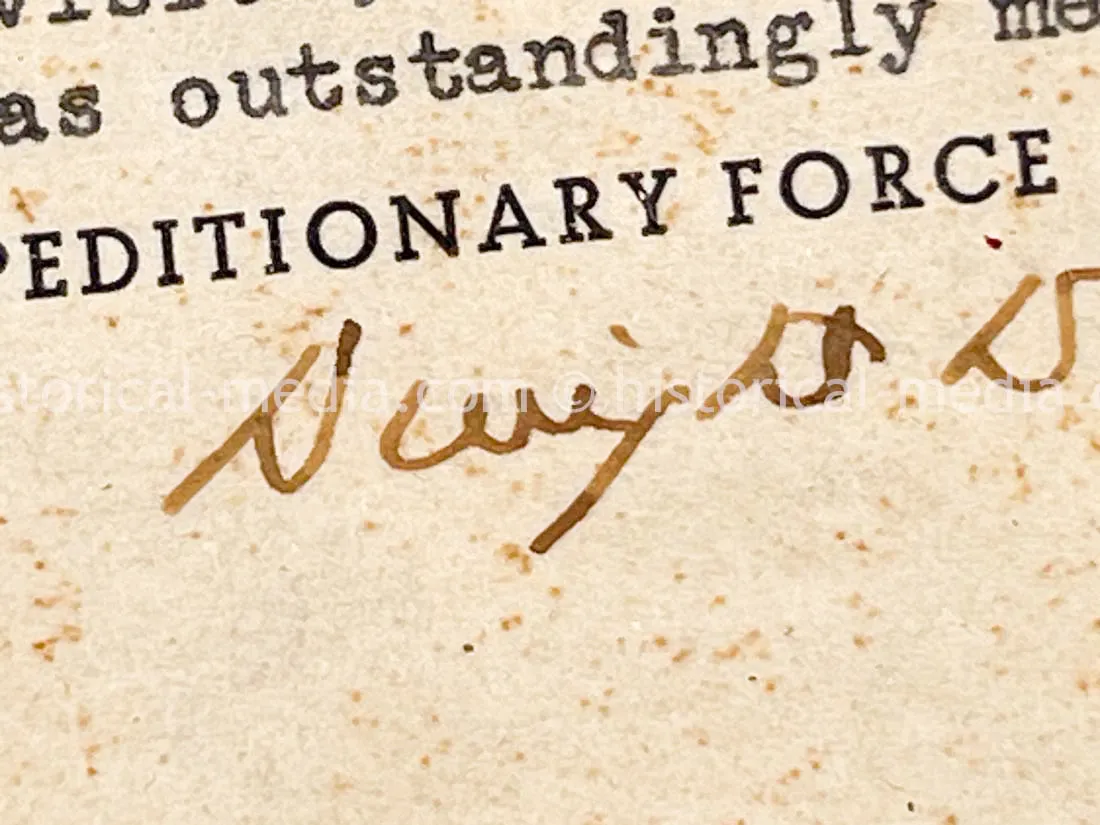 as outstandingly me
PEDITIONARY FORCE
Dwight D
storical-media.com © historical-media.c